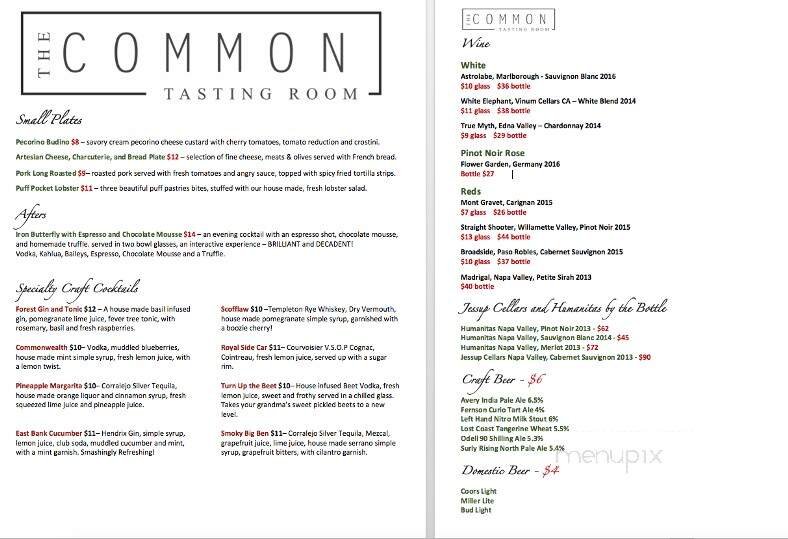 THE COMMON
TASTING ROOM
Small Plates
Pecorino Budino $8 – savory cream pecorino cheese custard with cherry tomatoes, tomato reduction and crostini.
Artesian Cheese, Charcuterie, and Bread Plate $12 – selection of fine cheese, meats & olives served with French bread.
Pork Long Roasted $9– roasted pork served with fresh tomatoes and angry sauce, topped with spicy fried tortilla strips.
Puff Pocket Lobster $11 – three beautiful puff pastries bites, stuffed with our house made, fresh lobster salad.
Afters
Iron Butterfly with Espresso and Chocolate Mousse $14 – an evening cocktail with an espresso shot, chocolate mousse,
and homemade truffle. served in two bowl glasses, an interactive experience – BRILLIANT and DECADENT!
Vodka, Kahlua, Baileys, Espresso, Chocolate Mousse and a Truffle.
Specialty Craft Cocktails
Forest Gin and Tonic $12 – A house made basil infused
gin, pomegranate lime juice, fever tree tonic, with
rosemary, basil and fresh raspberries.
Commonwealth $10– Vodka, muddled blueberries,
house made mint simple syrup, fresh lemon juice, with
a lemon twist.
Pineapple Margarita $10– Corralejo Silver Tequila,
house made orange liquor and cinnamon syrup, fresh
squeezed lime juice and pineapple juice.
East Bank Cucumber $11– Hendrix Gin, simple syrup,
lemon juice, club soda, muddled cucumber and mint,
with a mint garnish. Smashingly Refreshing!
Scofflaw $10 –Templeton Rye Whiskey, Dry Vermouth,
house made pomegranate simple syrup, garnished with
a boozie cherry!
Royal Side Car $11– Courvoisier V.S.O.P Cognac,
Cointreau, fresh lemon juice, served up with a sugar
rim.
Turn Up the Beet $10– House infused Beet Vodka, fresh
lemon juice, sweet and frothy served in a chilled glass.
Takes your grandma's sweet pickled beets to a new
level.
Smoky Big Ben $11– Corralejo Silver Tequila, Mezcal,
grapefruit juice, lime juice, house made serrano simple
syrup, grapefruit bitters, with cilantro garnish.
THE COMMON
TASTING ROOM
Wine
White
Astrolabe, Marlborough - Sauvignon Blanc 2016
$10 glass $36 bottle
White Elephant, Vinum Cellars CA – White Blend 2014
$11 glass $38 bottle
True Myth, Edna Valley – Chardonnay 2014
$9 glass $29 bottle
Pinot Noir Rose
Flower Garden, Germany 2016
Bottle $27
Reds
Mont Gravet, Carignan 2015
$7 glass $26 bottle
Straight Shooter, Willamette Valley, Pinot Noir 2015
$13 glass $44 bottle
Broadside, Paso Robles, Cabernet Sauvignon 2015
$10 glass $37 bottle
Madrigal, Napa Valley, Petite Sirah 2013
$40 bottle
Jessup Cellars and Humanitas by the Bottle
Humanitas Napa Valley, Pinot Noir 2013 - $62
Humanitas Napa Valley, Sauvignon Blanc 2014 - $45
Humanitas Napa Valley, Merlot 2013 - $72
Jessup Cellars Napa Valley, Cabernet Sauvignon 2013 - $90
Craft Beer - $6
Avery India Pale Ale 6.5%
Fernson Curlo Tart Ale 4%
Left Hand Nitro Milk Stout 6%
Lost Coast Tangerine Wheat 5.5%
Odell 90 Shilling Ale 5.3%
Surly Rising North Pale Ale 5.4%
menupix
Domestic Beer - $4
Coors Light
Miller Lite
Bud Light